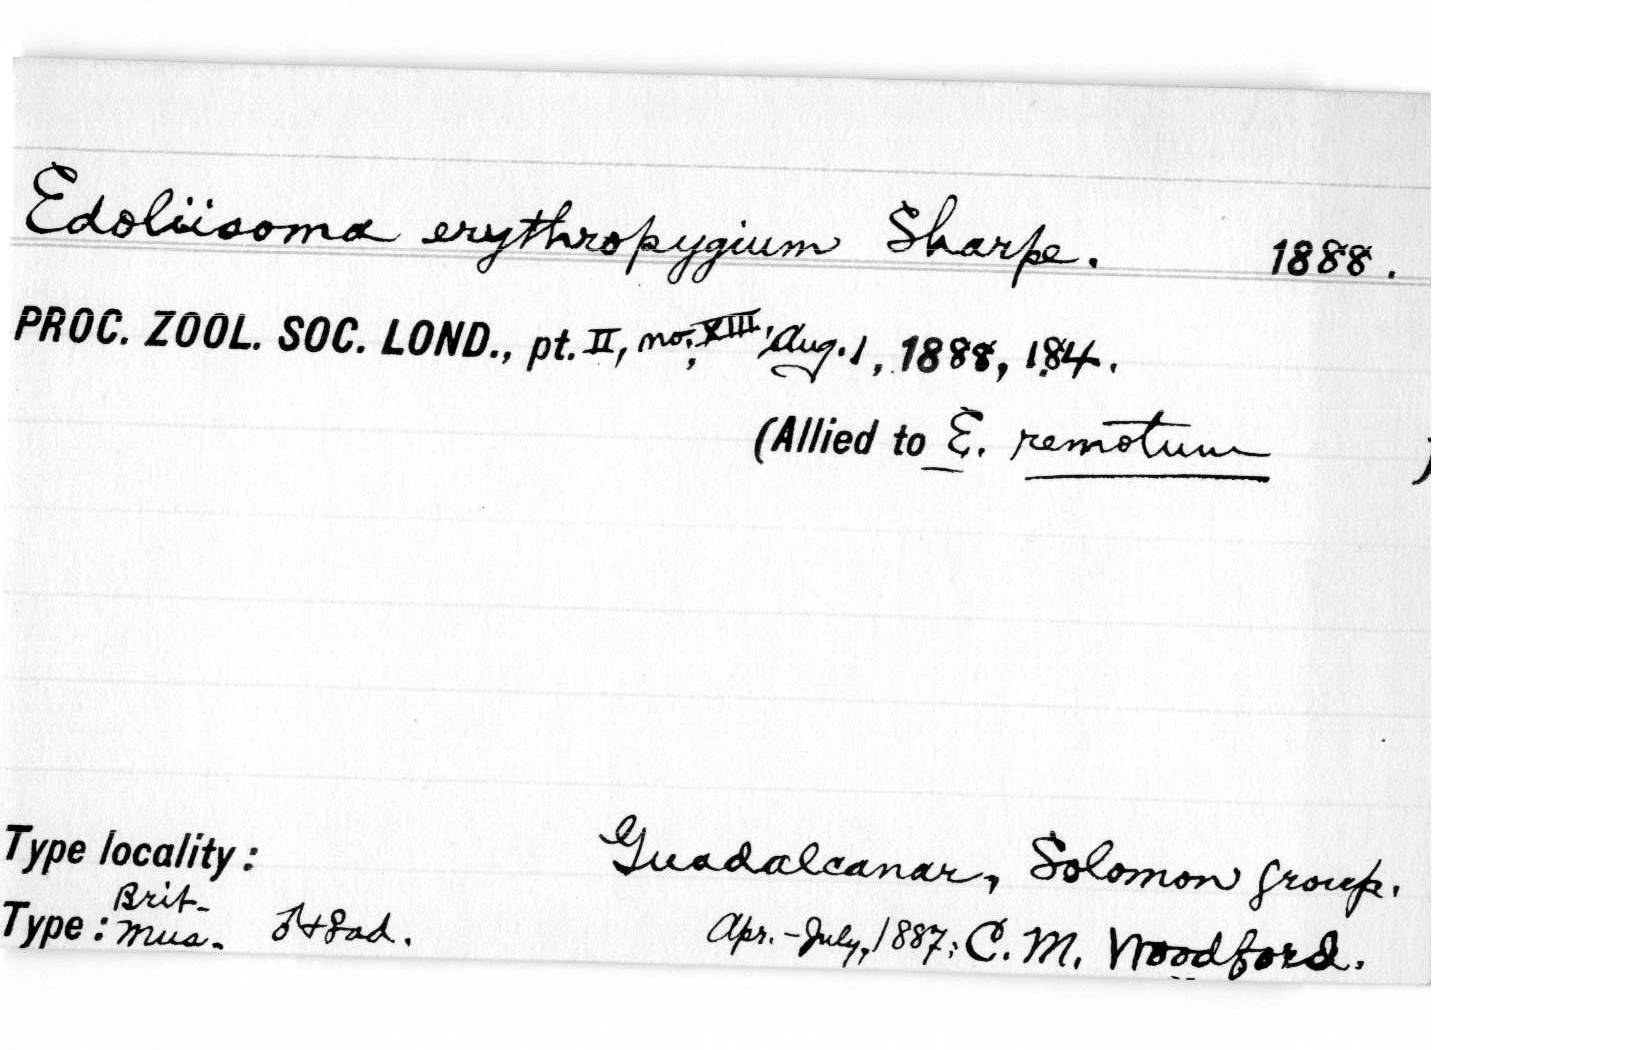 Edoliisoma erythropygium Sharpe. 1888.
PROC. ZOOL. SOC. LOND., pt. II, no. XIII, Aug. 1, 1888, 184.
(Allied to E. remotum )
Type locality: Guadalcanar, Solomon group.
Type: Brit. Mus. ♂+♀ad. Apr.-July, 1887; C. M. Woodford.